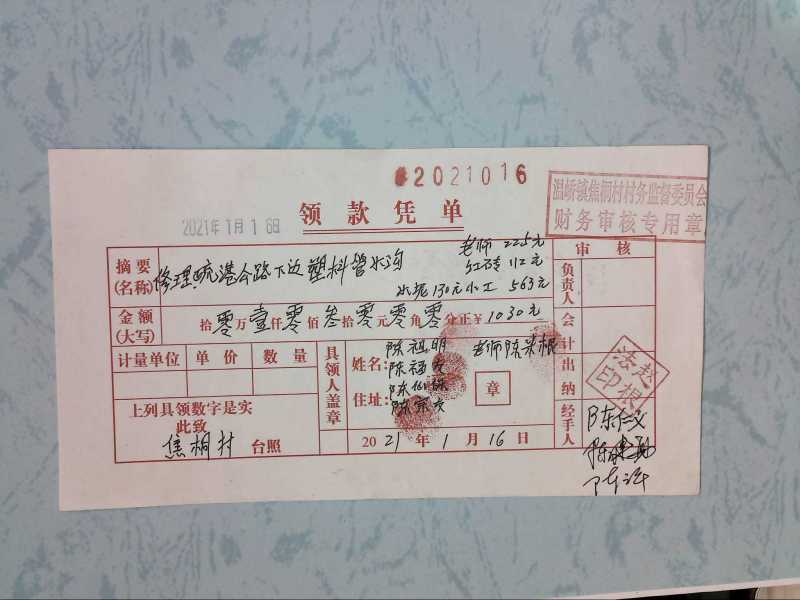 2021016
温峤镇焦桐村村务监督委员会
财务审核专用章
2021年1月16日
领款凭单
摘要(名称) 修理 疏港公路下边塑料管水沟
老师 225元
红砖 112元
水泥130元小工 563元
审核
负责人
金额(大写) 拾零万壹仟零佰叁拾零元零角零分正¥1030元
会计
计量单位 单价 数量
具领人盖章
姓名: 陈祖明 老师陈米根
陈福友
住址:
陈宗友
章
赵根法印
出纳
上列具领数字是实
此致
焦桐村 台照
2021年1月16日
经手人
陈仁义